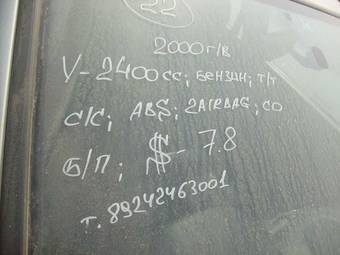 22
2000 г/в
V-2400cc; бензин; т/т
с/с; ABS; 2AIRBAG; CD
Б/П; $-7.8
т. 89242463001